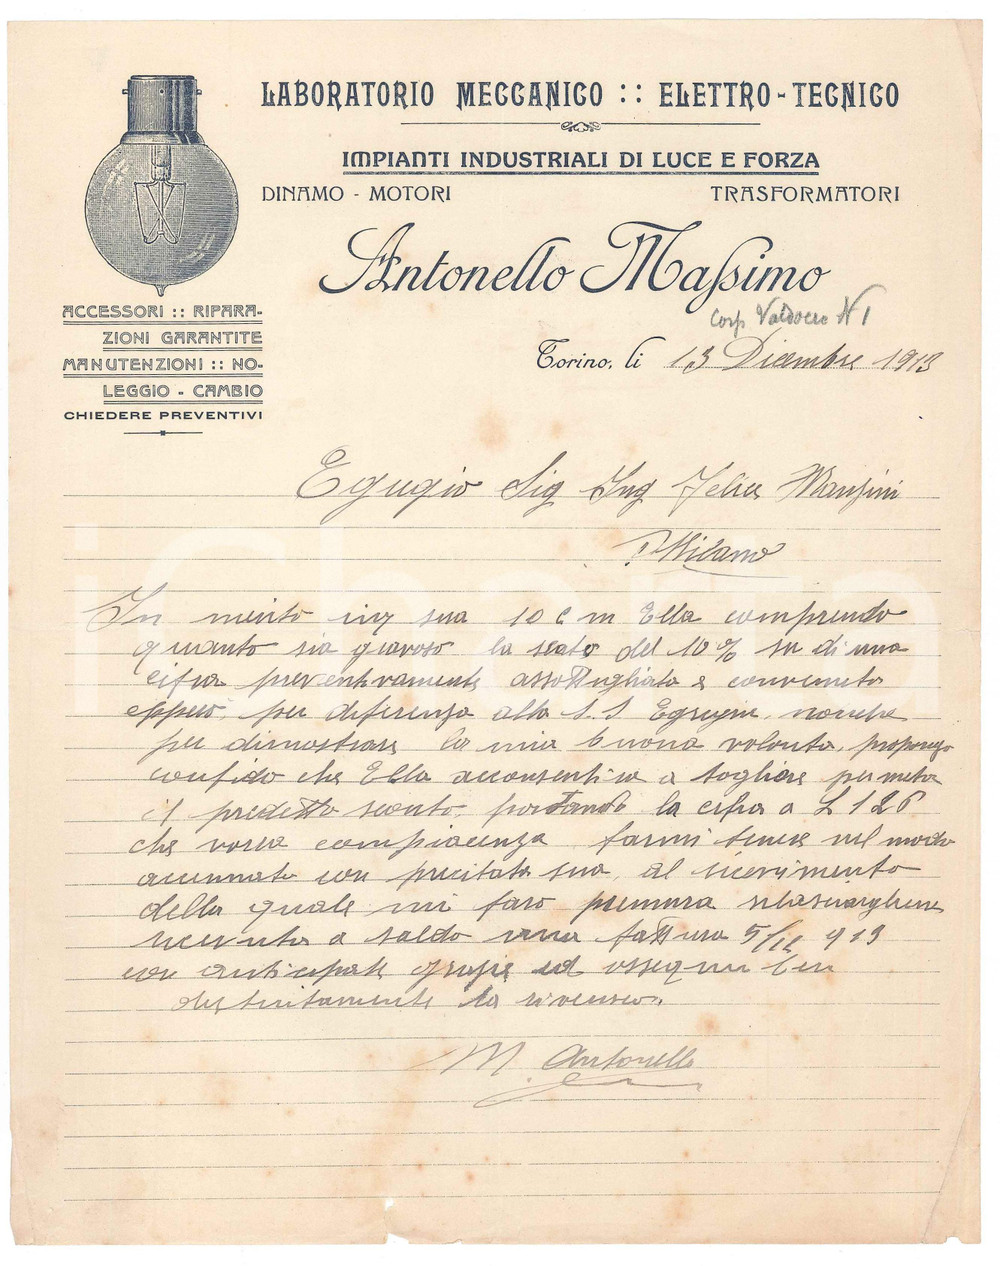 LABORATORIO MECCANICO :: ELETTRO-TECNICO
IMPIANTI INDUSTRIALI DI LUCE E FORZA
DINAMO - MOTORI TRASFORMATORI
Antonello Massimo
Corso Valdocco N 1
Torino, li 13 Dicembre 1913
ACCESSORI :: RIPARA-
ZIONI GARANTITE
MANUTENZIONI :: NO-
LEGGIO - CAMBIO
CHIEDERE PREVENTIVI
Egregio Sig Ing Felice Manfini
Milano
In merito sua 10 c m Ella comprendo
quanto sia gravoso lo sconto del 10% su di una
cifra preventivamente assottigliata e convenuta
eppero, per diferenza alla S.S. Egregia, nonche
per dimostrare la mia buona volonta, propongo
confido che Ella acconsentira a togliere per meta
il predetto sconto, portando la cifra a L 126
che vorra compiacenza farmi tenere nel modo
accennato con precitata sua, al ricevimento
della quale mi faro premura rilasciargliene
ricevuta a saldo mia fattura 5/12 913
con anticipate grazie ed ossequi ben
distintamente la riverisco.
M Antonello